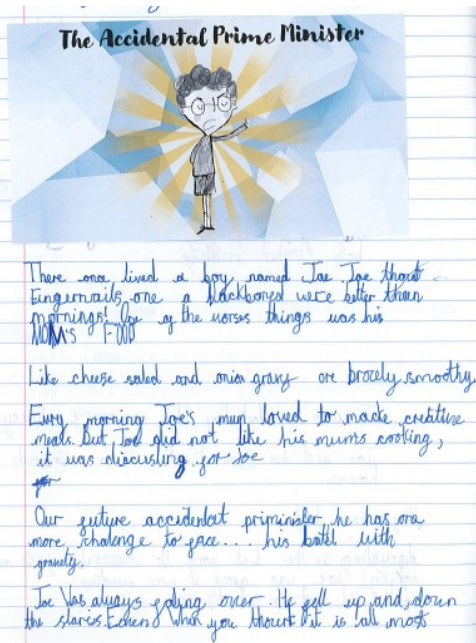 The Accidental Prime Minister
There once lived a boy named Joe. Joe thout
Fingernails one a blackbored were better than
mornings! One of the worses things was his
MOM's FOOD
Like cheese saled and onion gravy ore brocely smoothy.
Evry morning Joe's mum loved to macke creative
meals. But Joe did not like his mums cooking,
it was discusting for Joe
Our future accidentat priminister he has one
more chalenge to face... his batel with
gravety.
Joe was always faling over. He fell up and down
the stares. Echen when you thourt it is all most